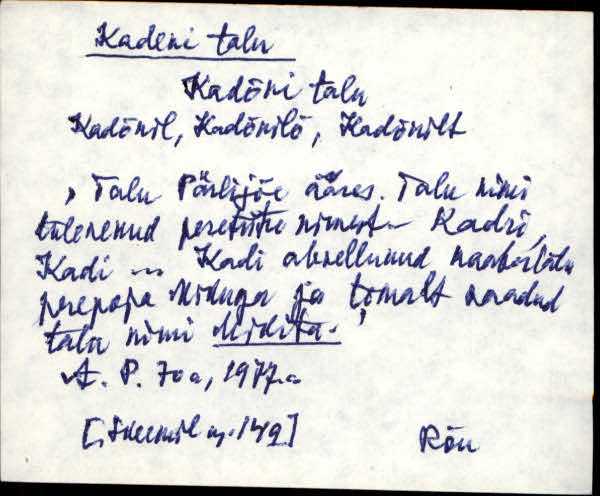 Kadeni talu
Kadõni talu
Kadõnil, Kadõnilõ, Kadõnilt
, Talu Pärlijõe ääres. Talu nimi
tulenenud peretütre nimest – Kadri,
Kadi ... Kadi abiellunud naabertalu
perepoja Miduga ja tomalt saadud
talu nimi Midita. '
A. P. 70 a, 1977. a
[, Skeemil nr. 149]
Rõu